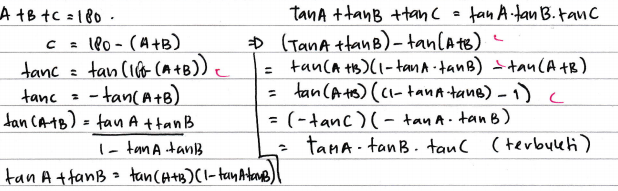 A + B + C = 180.
C = 180 - (A+B)
tan C = tan (180 - (A+B))
tan C = - tan (A+B)
tan (A+B) = tan A + tan B / 1 - tan A tan B
tan A + tan B = tan (A+B) (1 - tan A tan B)
tan A + tan B + tan C = tan A . tan B . tan C
⇒ (Tan A + tan B) - tan (A+B)
= tan (A+B) (1 - tan A . tan B) - tan (A+B)
= tan (A+B) ((1 - tan A . tan B) - 1)
= (- tan C) (- tan A . tan B)
= Tan A . tan B . tan C (terbukti)